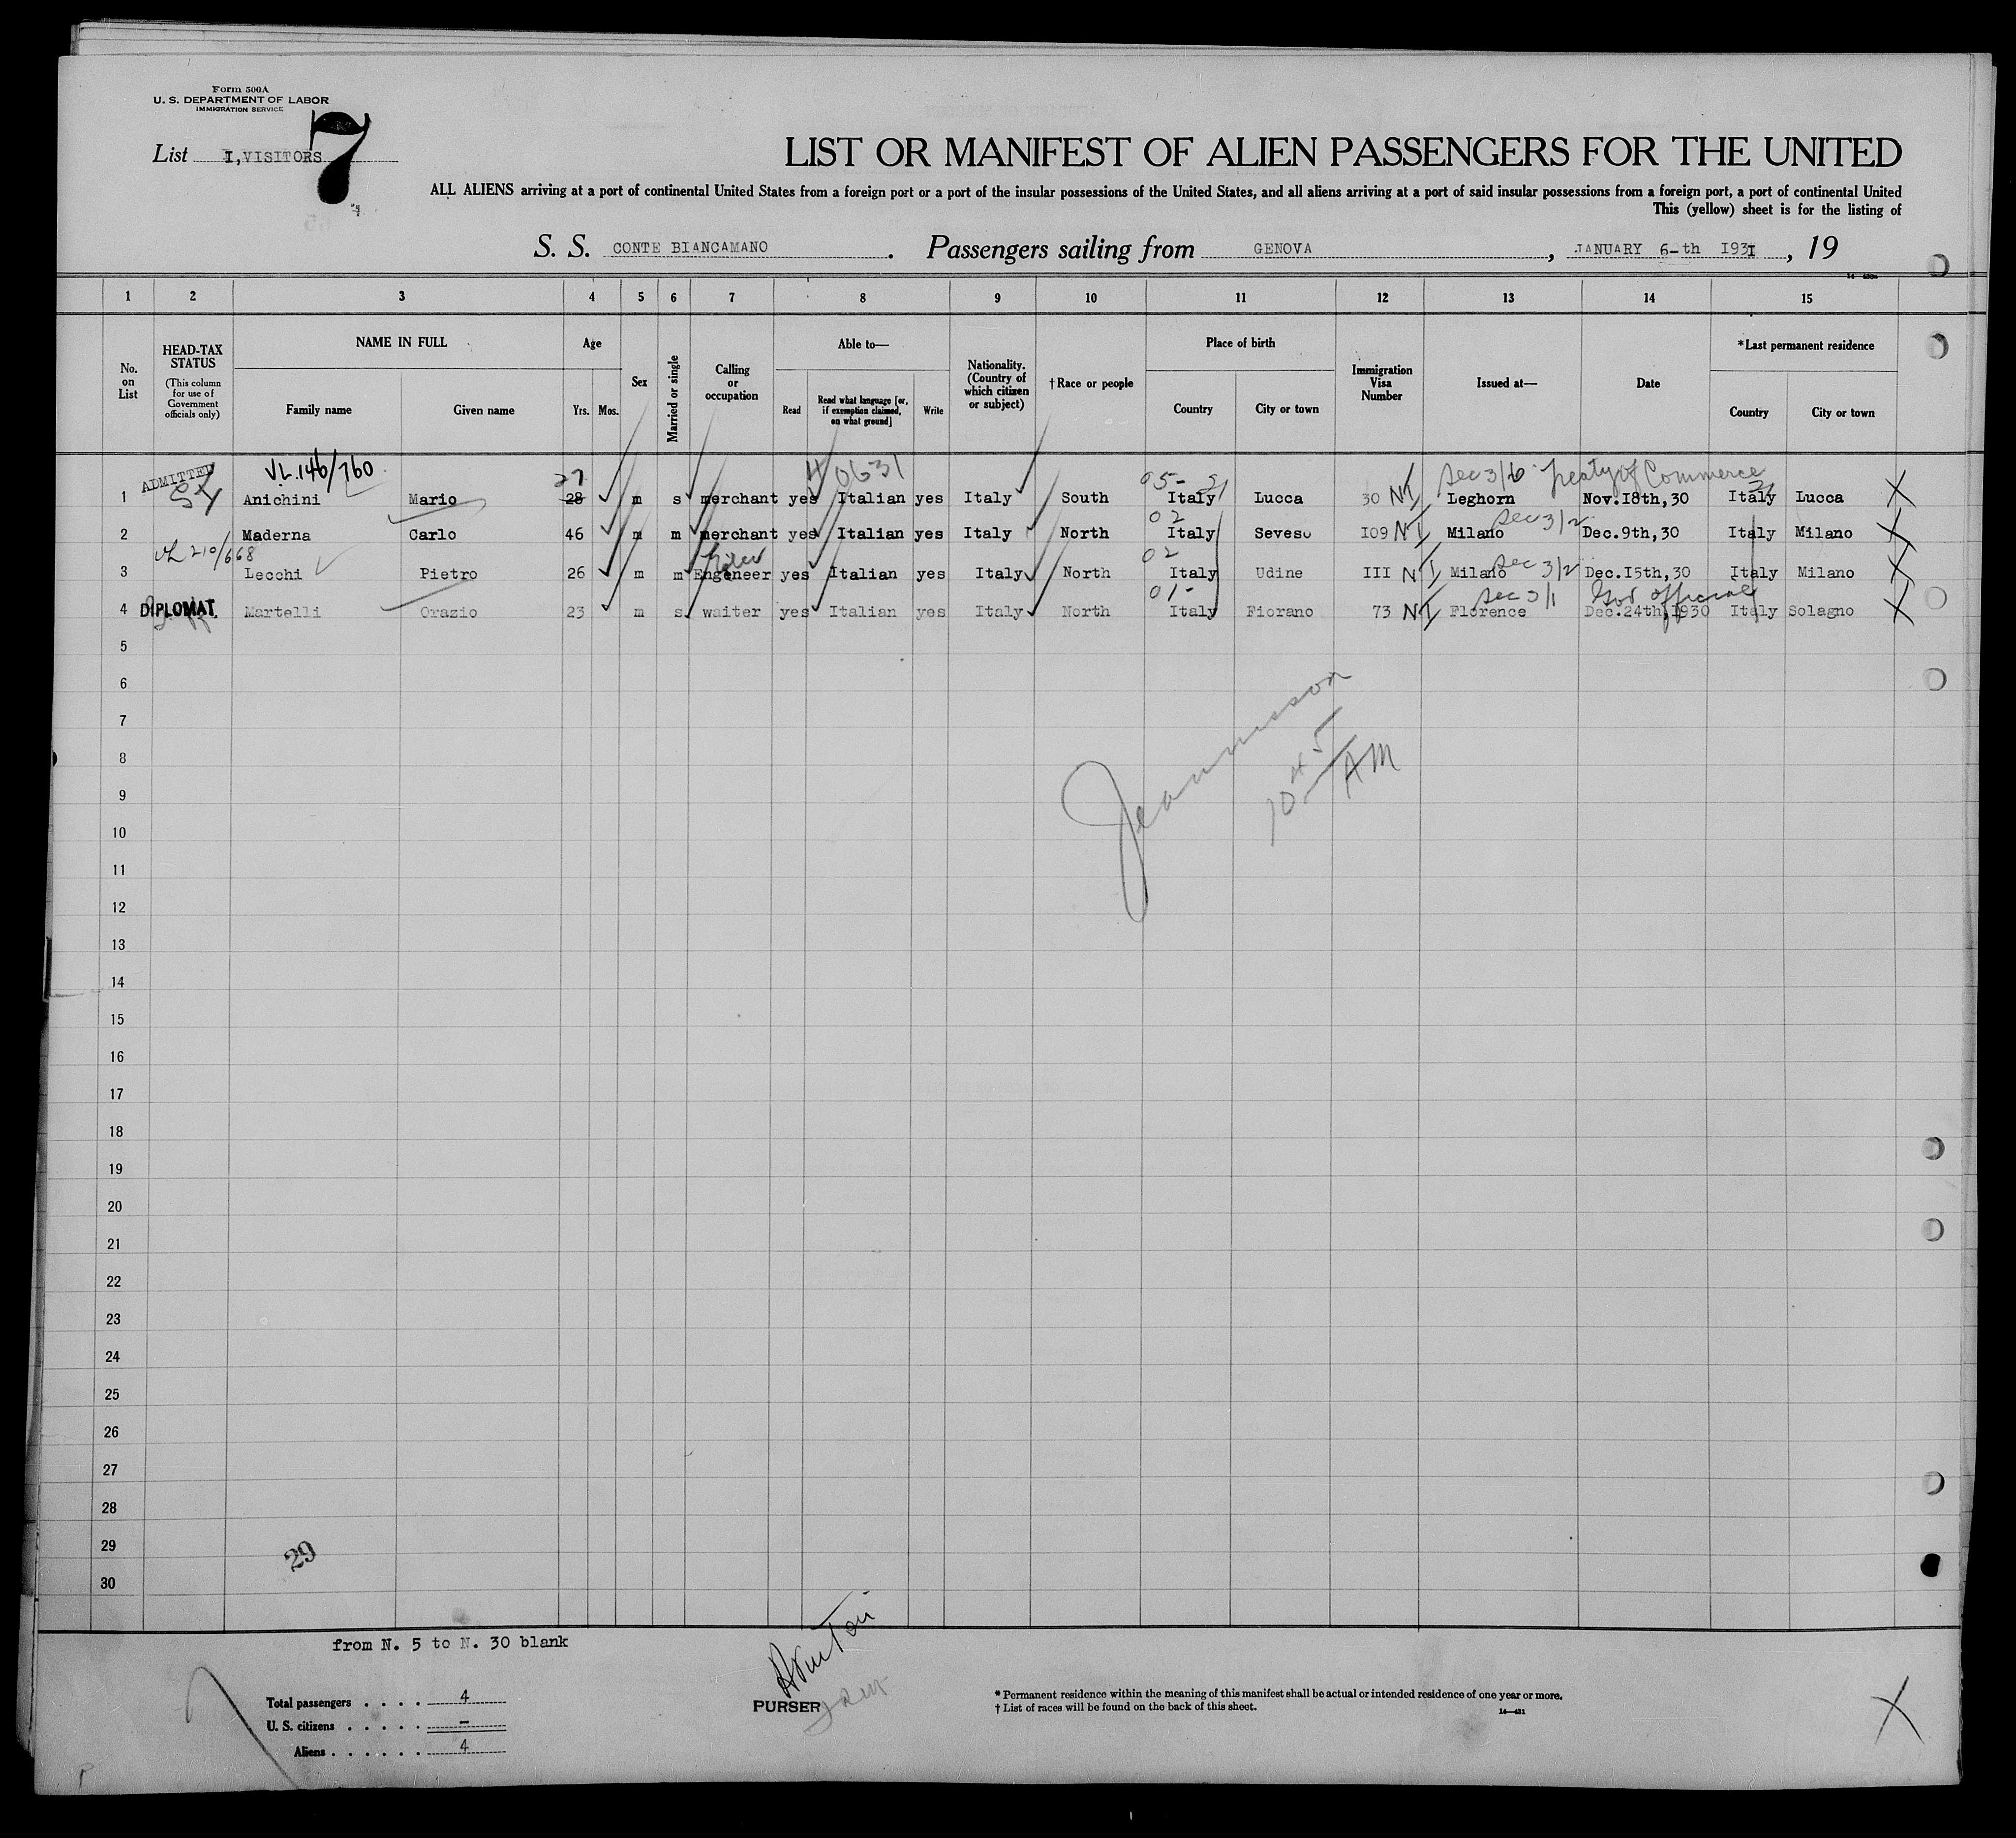 Form 500A
U. S. DEPARTMENT OF LABOR
IMMIGRATION SERVICE
List I,VISITORS 7
LIST OR MANIFEST OF ALIEN PASSENGERS FOR THE UNITED
ALL ALIENS arriving at a port of continental United States from a foreign port or a port of the insular possessions of the United States, and all aliens arriving at a port of said insular possessions from a foreign port, a port of continental United
This (yellow) sheet is for the listing of
S. S. CONTE BIANCAMANO. Passengers sailing from GENOVA, JANUARY 6-th 1931, 19
1 2 3 4 5 6 7 8 9 10 11 12 13 14 15
No. on List
HEAD-TAX STATUS
(This column for use of Government officials only)
NAME IN FULL
Family name Given name
Age
Yrs. Mos.
Sex
Married or single
Calling or occupation
Able to—
Read
Read what language [or, if exemption claimed, on what ground]
Write
Nationality. (Country of which citizen or subject)
† Race or people
Place of birth
Country City or town
Immigration Visa Number
Issued at—
Date
*Last permanent residence
Country City or town
ADMITTED V.L.146/760 27 Sec 3/6 Treaty of Commerce
1 Anichini Mario 28 m s merchant yes Italian yes Italy South Italy Lucca 30 NI Leghorn Nov.18th,30 Italy Lucca
02 Sec 3/2
2 Maderna Carlo 46 m m merchant yes Italian yes Italy North Italy Seveso 109 NI Milano Dec.9th,30 Italy Milano
VL 210/668 02 Sec 3/2
3 Lecchi Pietro 26 m m Engeneer yes Italian yes Italy North Italy Udine III NI Milano Dec.15th,30 Italy Milano
01- Sec 3/1 Gov official
4 DIPLOMAT Martelli Orazio 23 m s waiter yes Italian yes Italy North Italy Fiorano 73 NI Florence Dec.24th,1930 Italy Solagno
5
6
7
8
9
10
11
12
13
14
15
16
17
18
19
20
21
22
23
24
25
26
27
28
29
30
10 45 AM
29
from N. 5 to N. 30 blank
Total passengers . . . . 4
U. S. citizens . . . . . –
Aliens . . . . . . 4
PURSER
* Permanent residence within the meaning of this manifest shall be actual or intended residence of one year or more.
† List of races will be found on the back of this sheet.
14—431